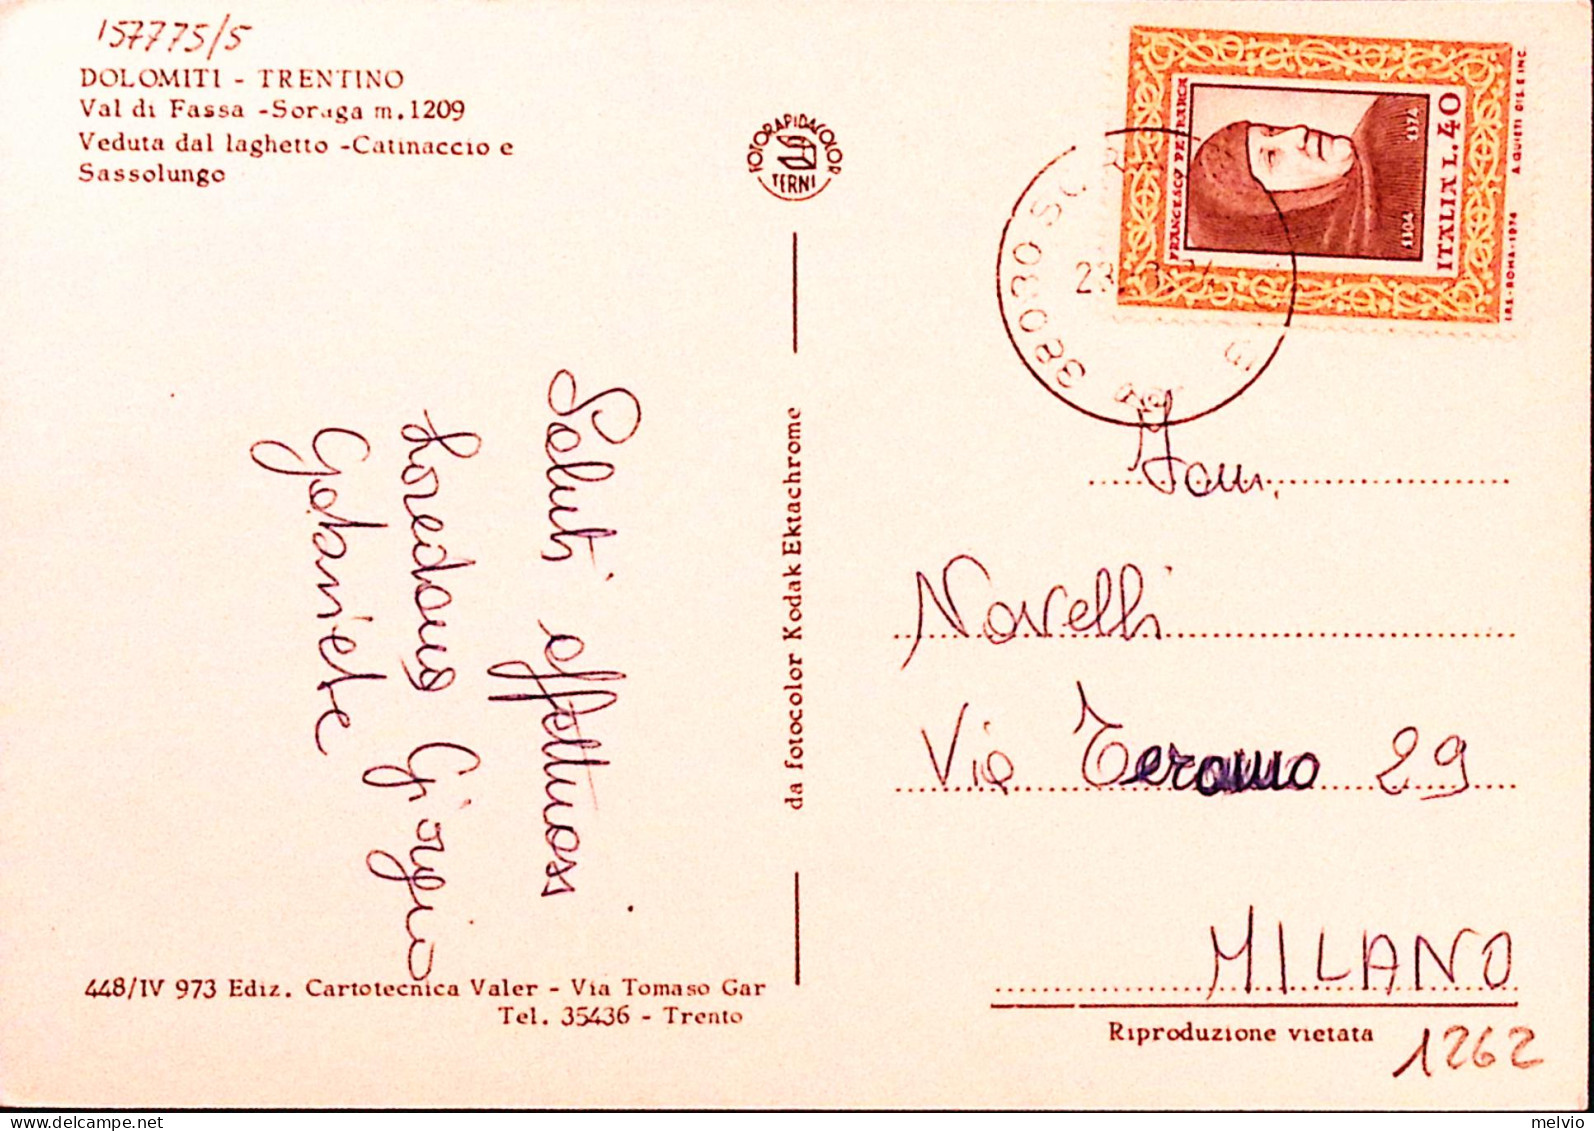 157775/5
DOLOMITI - TRENTINO
Val di Fassa -Soraga m.1209
Veduta dal laghetto -Catinaccio e
Sassolungo
FOTORAPIDACOLOR
TERNI
FRANCESCO PETRARCA
1304
1374
ITALIA L.40
I.P.S.-ROMA-1974
A.QUIETI DIS. E INC.
38030 SO
Saluti affettuosi
Loredana Giorgio
Gabriele
da fotocolor Kodak Ektachrome
Fam.
Novelli
Via Teramo 29
MILANO
448/IV 973 Ediz. Cartotecnica Valer - Via Tomaso Gar
Tel. 35436 - Trento
Riproduzione vietata
1262
melvio